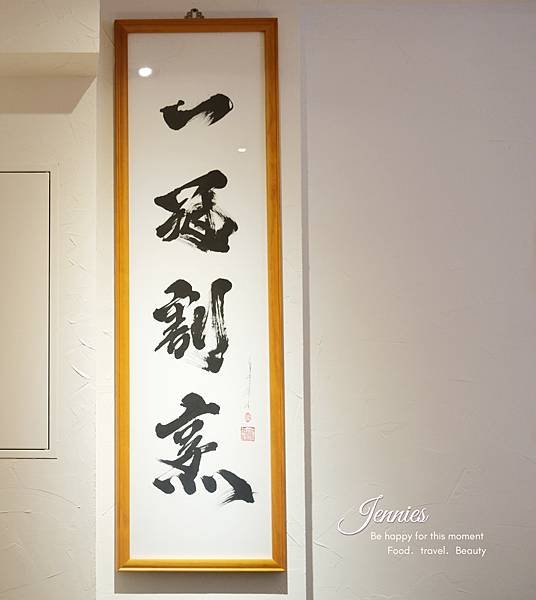 一冠割烹
Jennies
Be happy for this moment
Food. travel. Beauty